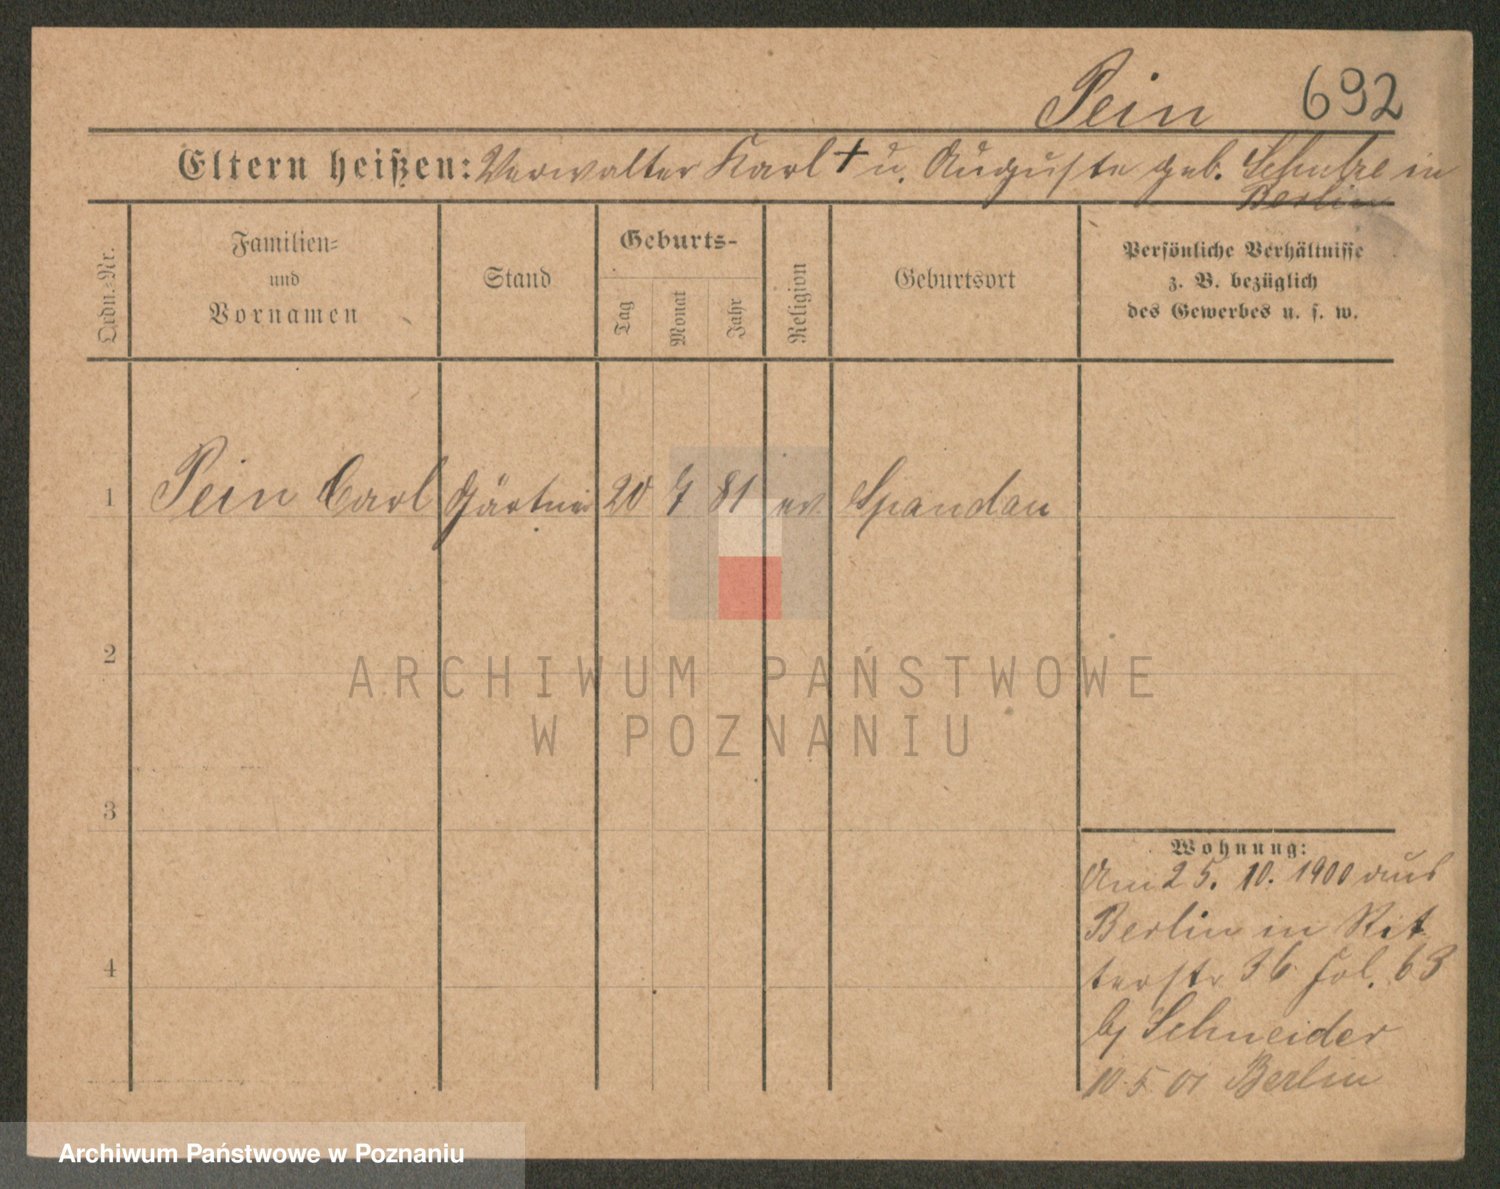 Pein 692
Eltern heißen: Verwalter Karl † u. Auguste geb. Schulze in
Berlin
Ordn.-Nr.
Familien-
und
Vornamen
Stand
Geburts-
Tag
Monat
Jahr
Religion
Geburtsort
Persönliche Verhältnisse
z. B. bezüglich
des Gewerbes u. s. w.
1 Pein Carl Gärtner 20 7 81 ev Spandau
2
3
4
Wohnung:
Am 25. 10. 1900 aus
Berlin in Rit
terstr 36 fol. 63
bj Schneider
10 5 01 Berlin
ARCHIWUM PAŃSTWOWE
W POZNANIU
Archiwum Państwowe w Poznaniu